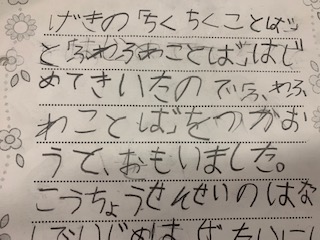 げきの「ちくちくことば」
と「ふわふわことば」はじ
めてきいたので、ふわふ
わことば」をつかお
うで、おもいました。
こうちょうせんせいのはな
しでいじめは、ぜったいに